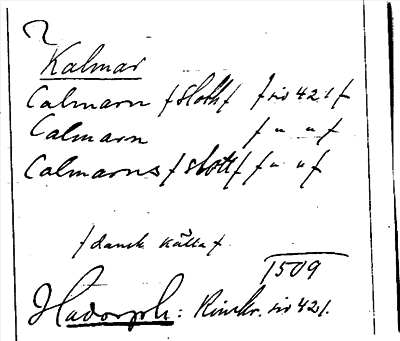 Kalmar
Calmarn /Sloth/ /sid 421/
Calmarn / " " /
Calmarns /slott/ / " " /
/dansk källa/
1509
Hadorph: Rimkr. sid 421.